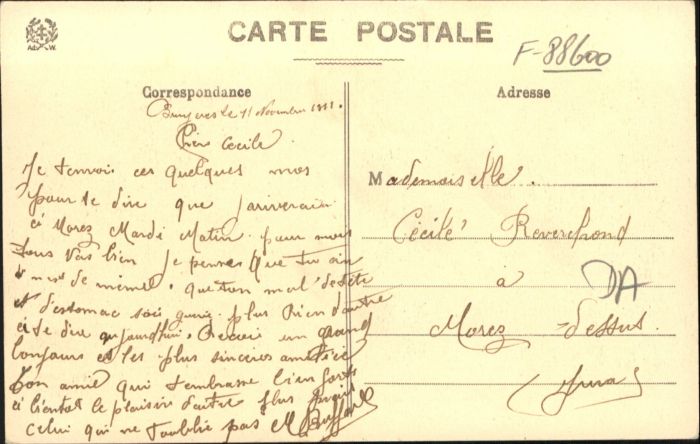 CARTE POSTALE
F-88600
Ad. W.
Correspondance
Bruyeres le 11 Novembre 1911.
Cécile.
Je tenvois ces quelques mos
pour te dire que jariverais
à Morez Mardi Matin. pour mois
tous vas bien je penses que tu ain
de meme. que ton mal de tete
et d'estomac sois gueris. plus Rien d'autre
a te dire aujourdhui. Recois un grand
bonjours et les plus sinceres amitiée
ton amie qui t'embrasse bien forts
a bientot le plaisir d'aitre plus
celui qui ne t'oublie pas
Adresse
Mademoiselle.
Cécile Reverchond
à
DA
Morez-dessus.
Jura